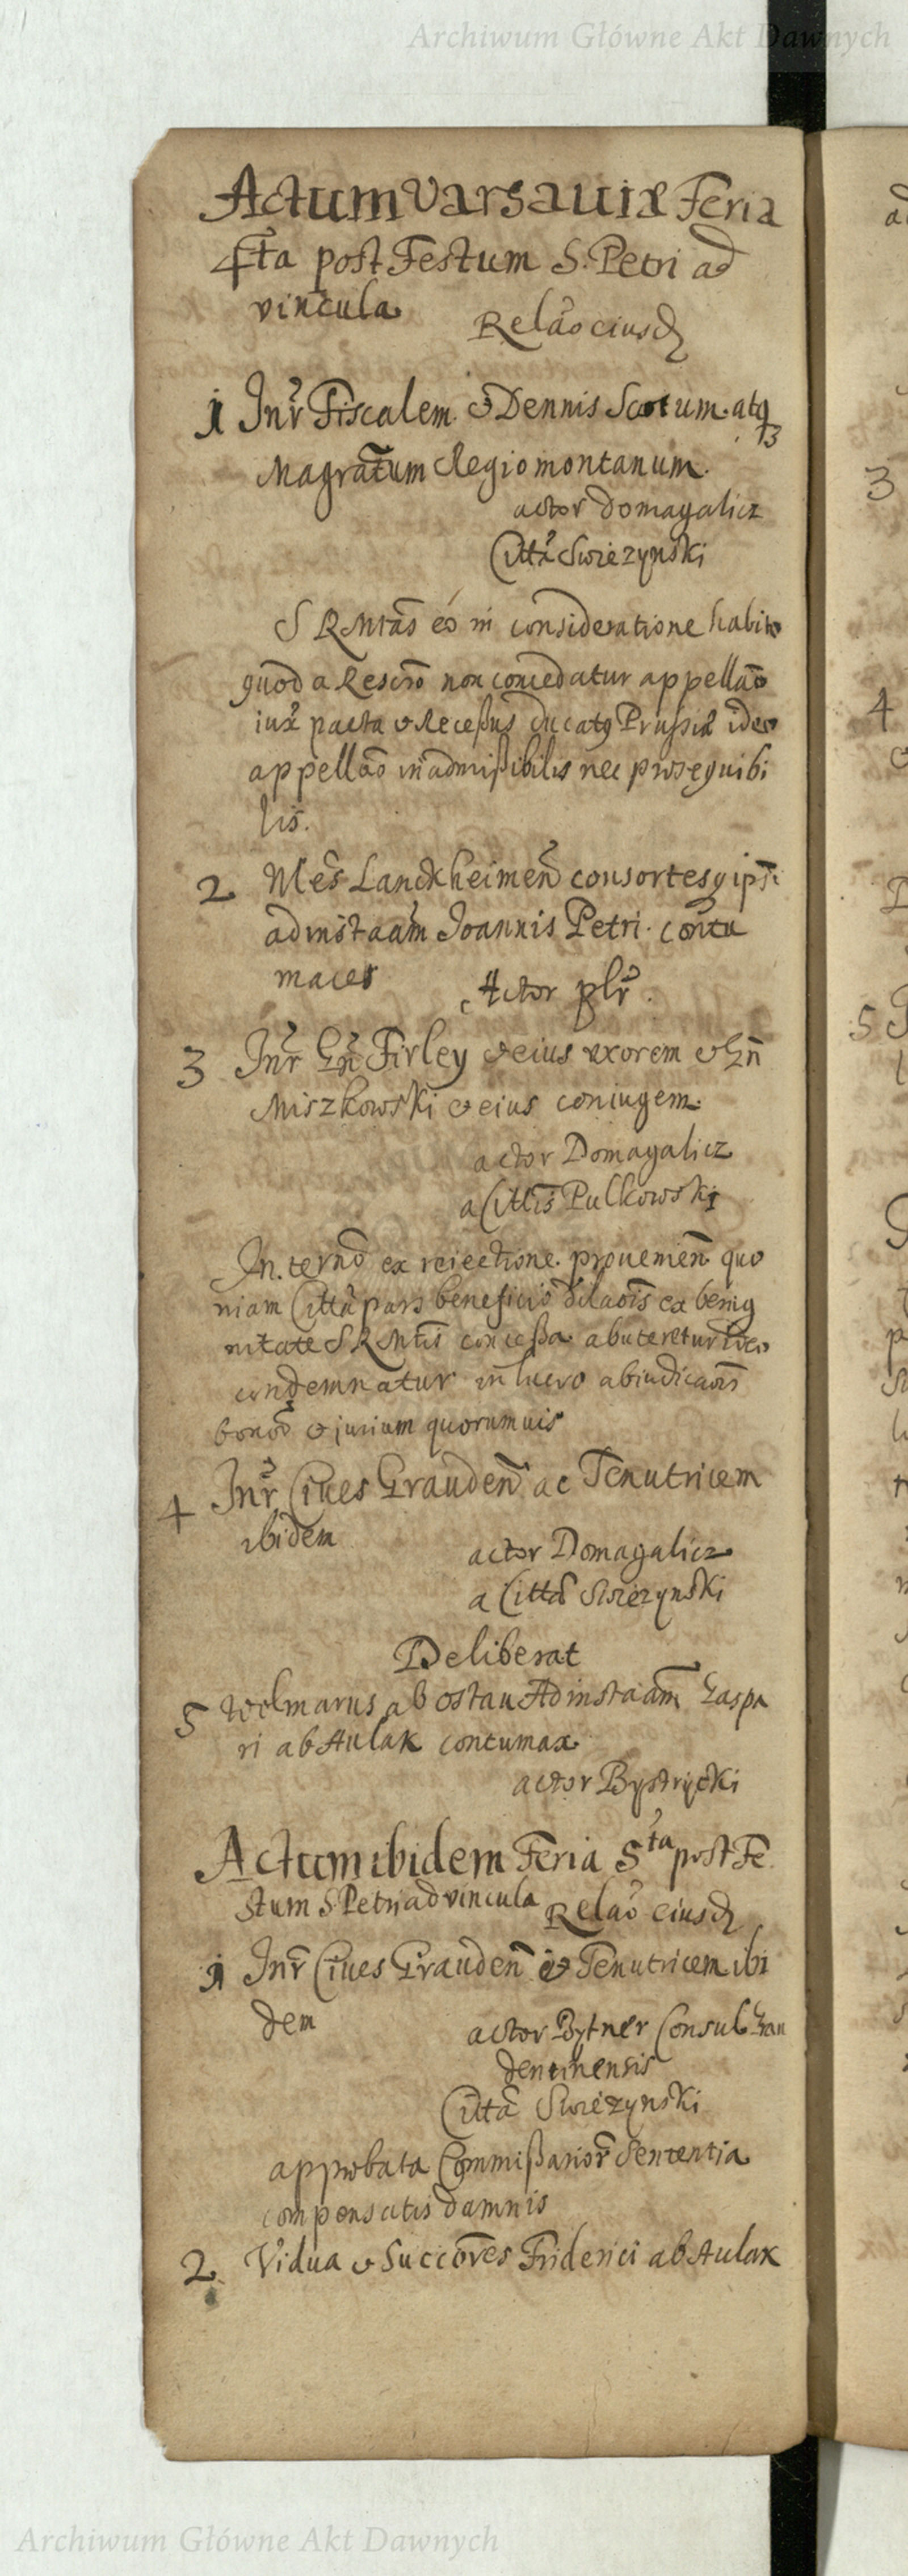 Archiwum Główne Akt Dawnych
Actum Varsaviæ Feria
4ta post Festum S. Petri ad
vincula
Relão eiusd
1 Inr̃ Fiscalem & Dennis Scotum atq
Magratum Regiomontanum
actor Domagalicz
Citta Swiezynski
S R Mtas eo in consideratione habito
quod a Rescro non concedatur appellao
iux pacta & Recessus Ducatq Prussiæ ideo
appellao inadmissibilis nec prosequibi
lis.
2 Landkheimen consortes
ad instaam Joannis Petri contu
maces
Actor plr
3 Inr Gn Firley & eius uxorem & Gn
Miszkowski & eius coniugem
actor Domagalicz
a Cittis Pulkowski
In termo ex reiectione provemen quo
niam Citta pars beneficio dilaois ex benig
nitate S R Mtis concessa abuteretur ideo
condemnatur in lucro abiudicaois
bonor & jurium quorumuis
4 Inr Ciues Grauden ac Tenutricem
ibidem
actor Domagalicz
a Citta Swiezynski
Deliberat
5 Wolmarus ab Ostau Ad instaam Gaspa
ri ab Aulak contumax
actor Bystrycki
Actum ibidem Feria 5ta post Fe
stum S Petri ad vincula
Relao eiusd
1 Inr Ciues Grauden & Tenutricem ibi
dem
actor Bytner Consul Grau
dentinensis
Citta Swiezynski
approbata Commissarior Sententia
compensatis damnis
2 Vidua & Succores Friderici ab Aulax
3
4
5
Archiwum Główne Akt Dawnych